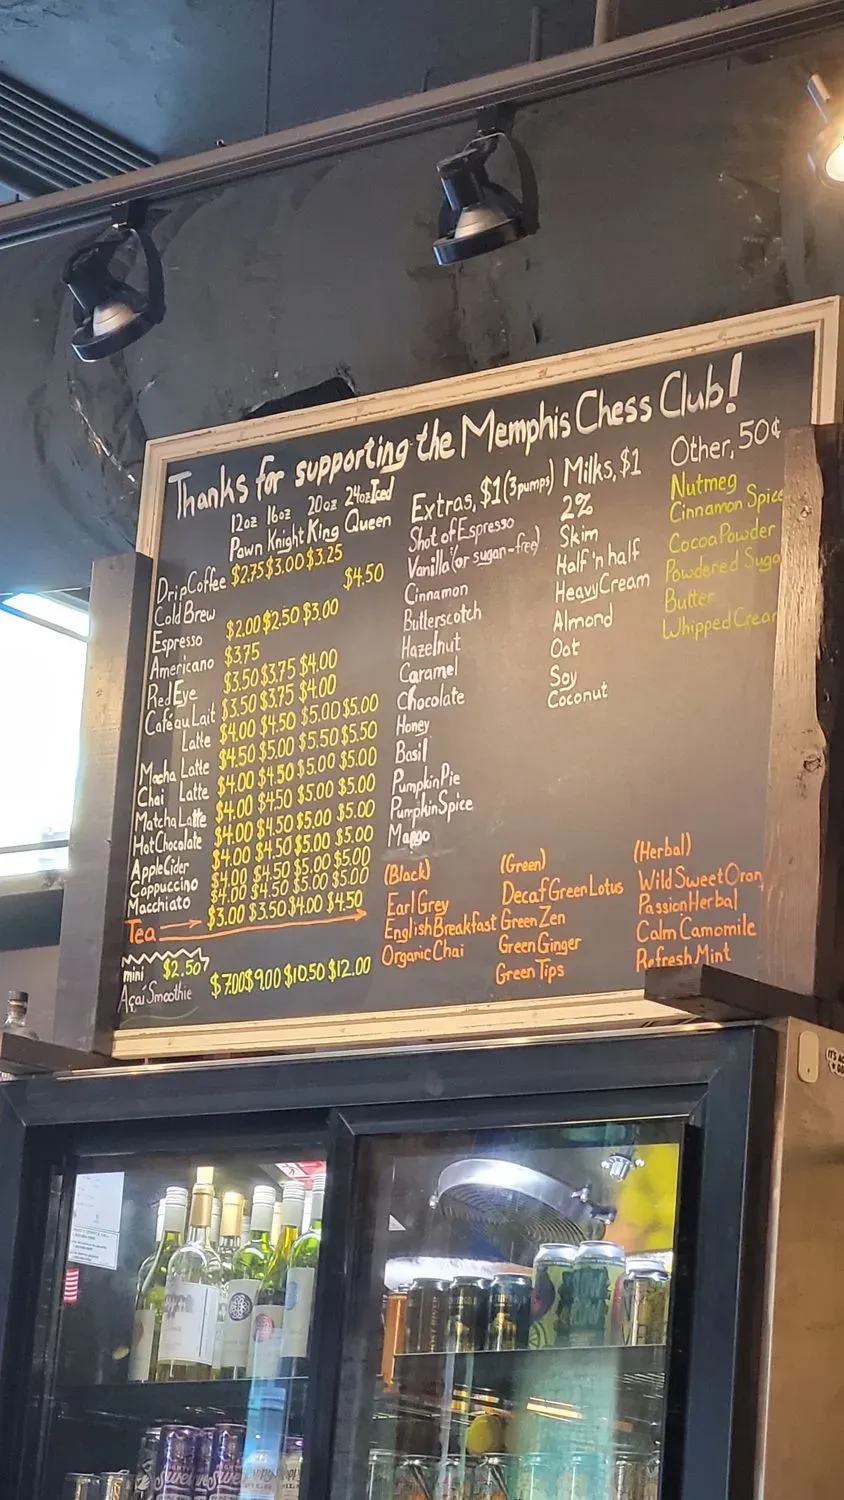 Thanks for supporting the Memphis Chess Club!
12oz 16oz 20oz 24oz Iced
Pawn Knight King Queen
Drip Coffee $2.75 $3.00 $3.25
Cold Brew $4.50
Espresso $2.00 $2.50 $3.00
Americano $3.75
Red Eye $3.50 $3.75 $4.00
Café au Lait $3.50 $3.75 $4.00
Latte $4.00 $4.50 $5.00 $5.00
Mocha Latte $4.50 $5.00 $5.50 $5.50
Chai Latte $4.00 $4.50 $5.00 $5.00
Matcha Latte $4.00 $4.50 $5.00 $5.00
Hot Chocolate $4.00 $4.50 $5.00 $5.00
Apple Cider $4.00 $4.50 $5.00 $5.00
Coppuccino $4.00 $4.50 $5.00 $5.00
Macchiato $4.00 $4.50 $5.00 $5.00
Tea $3.00 $3.50 $4.00 $4.50
mini $2.50
Açai Smoothie $7.00 $9.00 $10.50 $12.00
Extras, $1 (3 pumps)
Shot of Espresso
Vanilla (or sugar-free)
Cinnamon
Butterscotch
Hazelnut
Caramel
Chocolate
Honey
Basil
Pumpkin Pie
Pumpkin Spice
Mango
Milks, $1
2%
Skim
Half 'n half
Heavy Cream
Almond
Oat
Soy
Coconut
Other, 50¢
Nutmeg
Cinnamon Spice
Cocoa Powder
Powdered Suga
Butter
Whipped Crea
(Black)
Earl Grey
English Breakfast
Organic Chai
(Green)
Decaf Green Lotus
Green Zen
Green Ginger
Green Tips
(Herbal)
Wild Sweet Oran
Passion Herbal
Calm Camomile
Refresh Mint